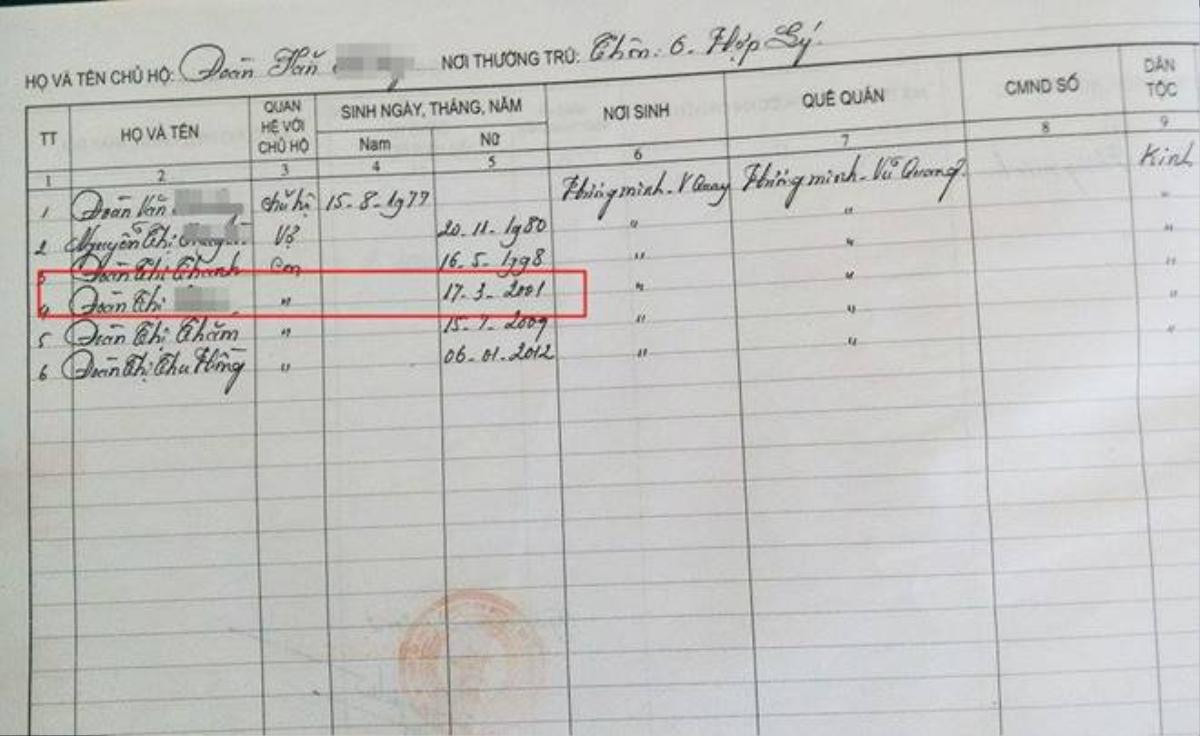 HỌ VÀ TÊN CHỦ HỘ: Đoàn Văn NƠI THƯỜNG TRÚ: Thôn: 6. Hợp Lý.
TT HỌ VÀ TÊN QUAN HỆ VỚI CHỦ HỘ SINH NGÀY, THÁNG, NĂM NƠI SINH QUÊ QUÁN CMND SỐ DÂN TỘC
Nam Nữ
1 2 3 4 5 6 7 8 9
1 Đoàn Văn chủ hộ 15-8-1977 Hương minh-V Quang Hương minh-Vũ Quang Kinh
2 Nguyễn Thị Vợ 20-11-1980 " " "
3 Đoàn Thị Thanh Con 16-5-1998 " " "
4 Đoàn Thị " 17-3-2001 " " "
5 Đoàn Thị Thắm " 2009 " " "
6 Đoàn Thị Thu Hồng " 06-01-2012 " "